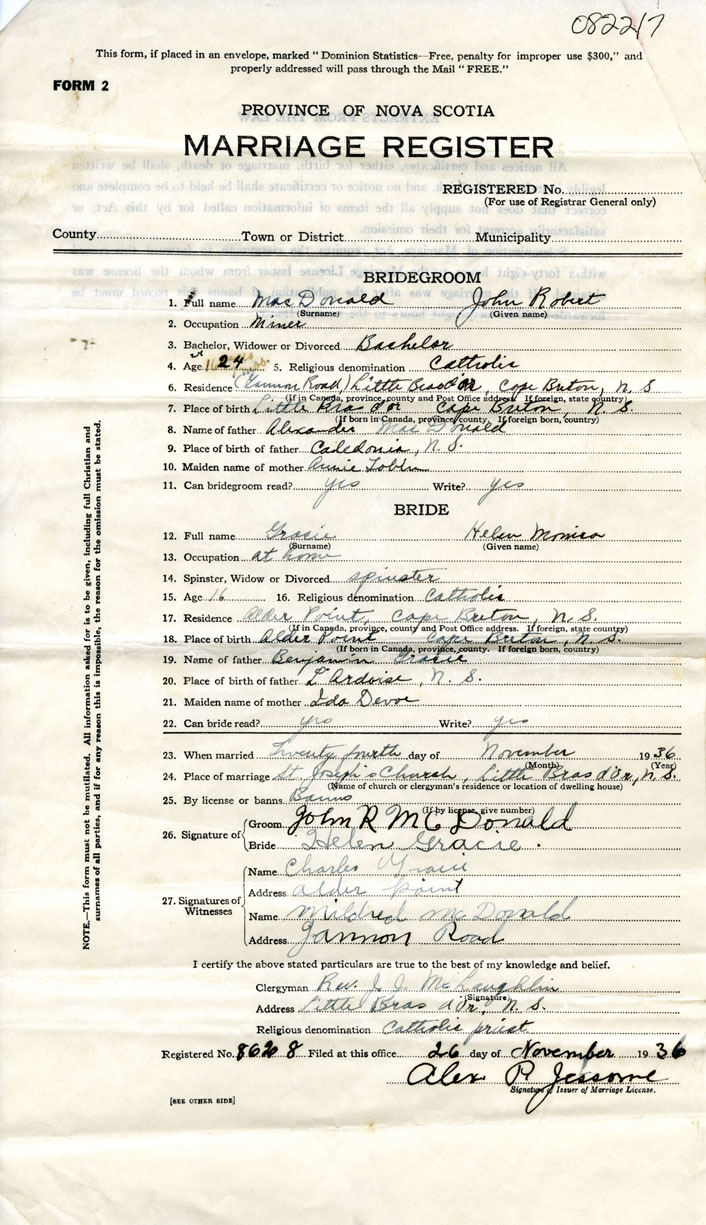 082217
This form, if placed in an envelope, marked "Dominion Statistics—Free, penalty for improper use $300," and
properly addressed will pass through the Mail "FREE."
FORM 2
PROVINCE OF NOVA SCOTIA
MARRIAGE REGISTER
REGISTERED No.
(For use of Registrar General only)
County Town or District Municipality
BRIDEGROOM
1. Full name MacDonald John Robert
(Surname) (Given name)
2. Occupation Miner
3. Bachelor, Widower or Divorced Bachelor
4. Age 24 5. Religious denomination Catholic
6. Residence (Gannon Road) Little Bras d'or, Cape Breton, N S
(If in Canada, province, county and Post Office address. If foreign, state country)
7. Place of birth Little Bras d'or Cape Breton, N. S.
(If born in Canada, province, county. If foreign born, country)
8. Name of father Alexander MacDonald
9. Place of birth of father Caledonia, N. S.
10. Maiden name of mother Annie Tobin
11. Can bridegroom read? yes Write? yes
BRIDE
12. Full name Gracie Helen Monica
(Surname) (Given name)
13. Occupation at home
14. Spinster, Widow or Divorced spinster
15. Age 16 16. Religious denomination Catholic
17. Residence Alder Point, Cape Breton, N. S.
(If in Canada, province, county and Post Office address. If foreign, state country)
18. Place of birth Alder Point Cape Breton, N. S.
(If born in Canada, province, county. If foreign born, country)
19. Name of father Benjamin Gracie
20. Place of birth of father L'Ardoise, N. S.
21. Maiden name of mother Ida Devoe
22. Can bride read? yes Write? yes
23. When married Twenty fourth day of November 1936
(Month) (Year)
24. Place of marriage St. Joseph's Church, Little Bras d'Or, N. S.
(Name of church or clergyman's residence or location of dwelling house)
25. By license or banns Banns
(If by license, give number)
26. Signature of Groom John R McDonald
Bride Helen Gracie.
27. Signatures of Witnesses
Name Charles Gracie
Address Alder Point
Name Mildred McDonald
Address Gannon Road
I certify the above stated particulars are true to the best of my knowledge and belief.
Clergyman Rev. J. J. McLaughlin
(Signature)
Address Little Bras d'Or, N S
Religious denomination Catholic priest
Registered No. 8628 Filed at this office 26 day of November 1936
Alex P. Jessome
Signature of Issuer of Marriage License.
[SEE OTHER SIDE]
NOTE.—This form must not be mutilated. All information asked for is to be given, including full Christian and
surnames of all parties, and if for any reason this is impossible, the reason for the omission must be stated.